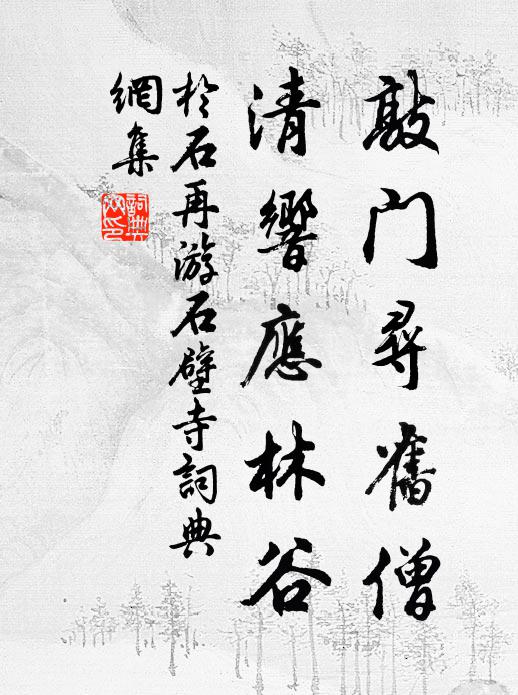 敲门尋舊僧
清響應林谷
於石再游石壁寺詞典
網集
詞典
网印